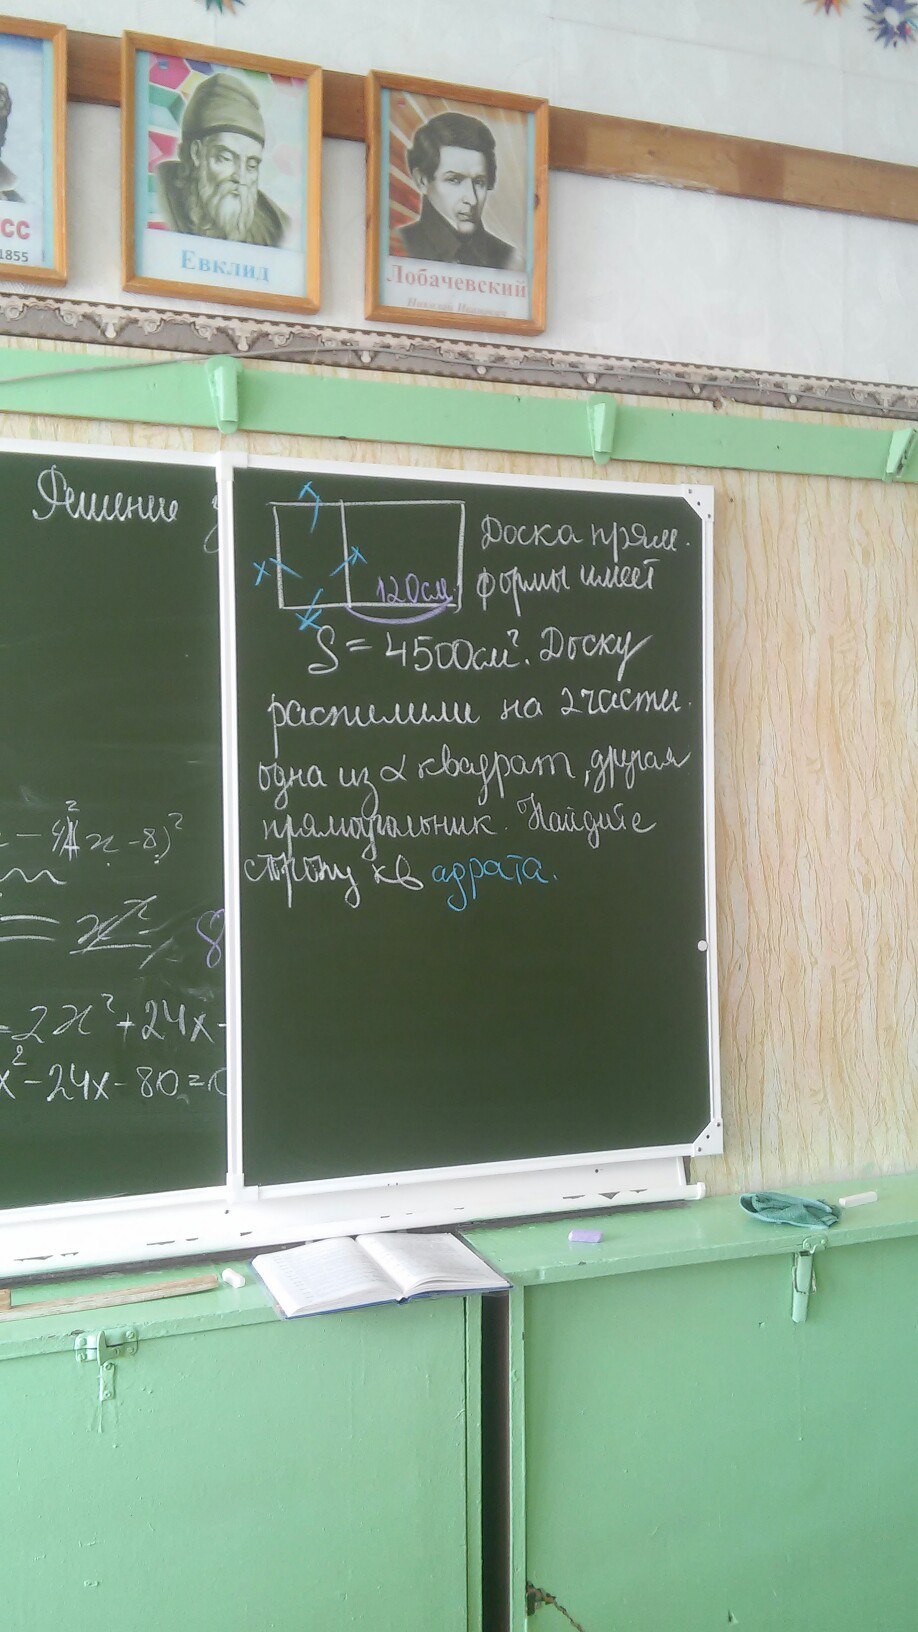 сс
1855
Евклид
Лобачевский
Николай Иванович
Решение
120см
Доска прям.
формы имеет
S = 4500см². Доску
распилили на 2 части.
одна из α квадрат, другая
прямоугольник. Найдите
сторону квадрата.
x
x
-8)²
= x²
8
-2x²+24x-
x²-24x-80=0